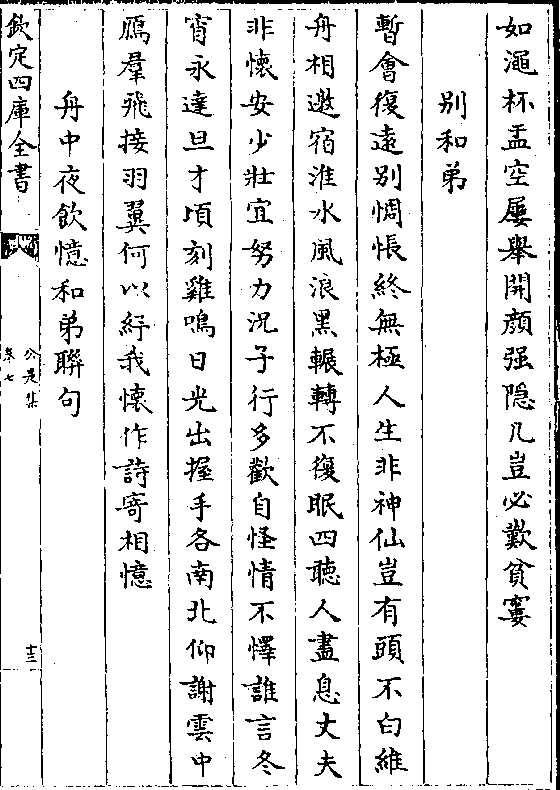 如澠杯盂空屢舉開顔强隠几豈必歎貧窶
别和弟
暫會復遠别惆悵終無極人生非神仙豈有頭不白維
舟相邀宿淮水風浪黑輾轉不復眠四聽人盡息丈夫
非懐安少壯宜努力況子行多歡自怪情不懌誰言冬
宵永達旦才頃刻雞鳴日光出握手各南北仰謝雲中
鴈羣飛接羽翼何以紓我懐作詩寄相憶
舟中夜飲憶和弟聯句
欽定四庫全書
公是集
卷七
十三